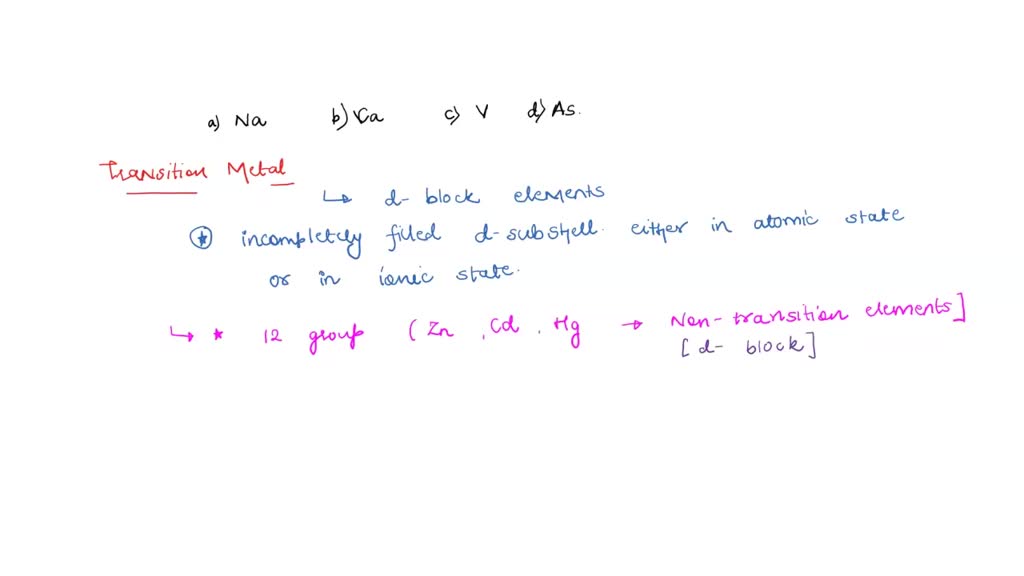 a) Na b) Ca c) V d) As.
Transition Metal
↳ d- block elements
★ incompletely filled d-subshell. either in atomic state
or in ionic state.
↳ * 12 group (Zn, Cd, Hg → Non-transition elements]
[d- block]